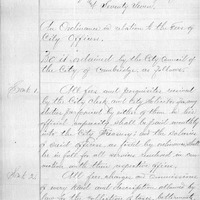 & Seventy Seven.
An Ordinance in relation to the Fees of
City Officers.
Be it ordained by the City Council of
the City of Cambridge, as follows.
Sect. 1. All fees and perquisites received
by the City Clerk and City Solicitor from any
duties performed by either of them in his
official capacity, shall be paid monthly
into the City Treasury; and the salaries
of said officers, as fixed by
be in full for all services rendered in con-
nection with their respective offices.
Sect. 2. All fees, charges, or commissions
of every kind and description, allowed by
law in the collection of taxes, betterments